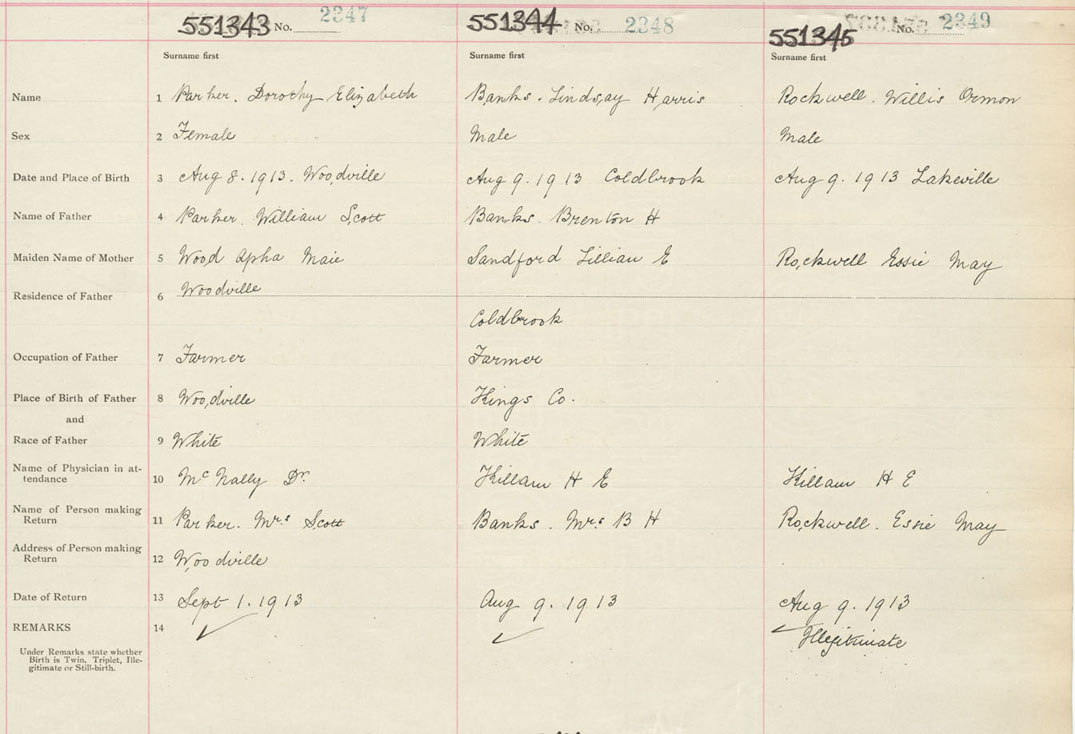 551343 No. 2347 551344 No. 2348 551345 No. 2349
Surname first Surname first Surname first
Name 1 Parker. Dorothy Elizabeth Banks. Lindsay Harris Rockwell. Willis Ormon
Sex 2 Female Male Male
Date and Place of Birth 3 Aug 8. 1913. Woodville Aug 9. 1913 Coldbrook Aug 9. 1913 Lakeville
Name of Father 4 Parker. William Scott Banks. Brenton H
Maiden Name of Mother 5 Wood Apha Maie Sandford Lillian E Rockwell Essie May
Residence of Father 6 Woodville
Coldbrook
Occupation of Father 7 Farmer Farmer
Place of Birth of Father 8 Woodville Kings Co.
and
Race of Father 9 White White
Name of Physician in at-
tendance 10 McNally Dr. Killam H E Killam H E
Name of Person making
Return 11 Parker. Mrs Scott Banks. Mrs B H Rockwell. Essie May
Address of Person making
Return 12 Woodville
Date of Return 13 Sept 1. 1913 Aug 9. 1913 Aug 9. 1913
REMARKS 14 ✓ ✓ ✓ Illegitimate
Under Remarks state whether
Birth is Twin, Triplet, Ille-
gitimate or Still-birth.